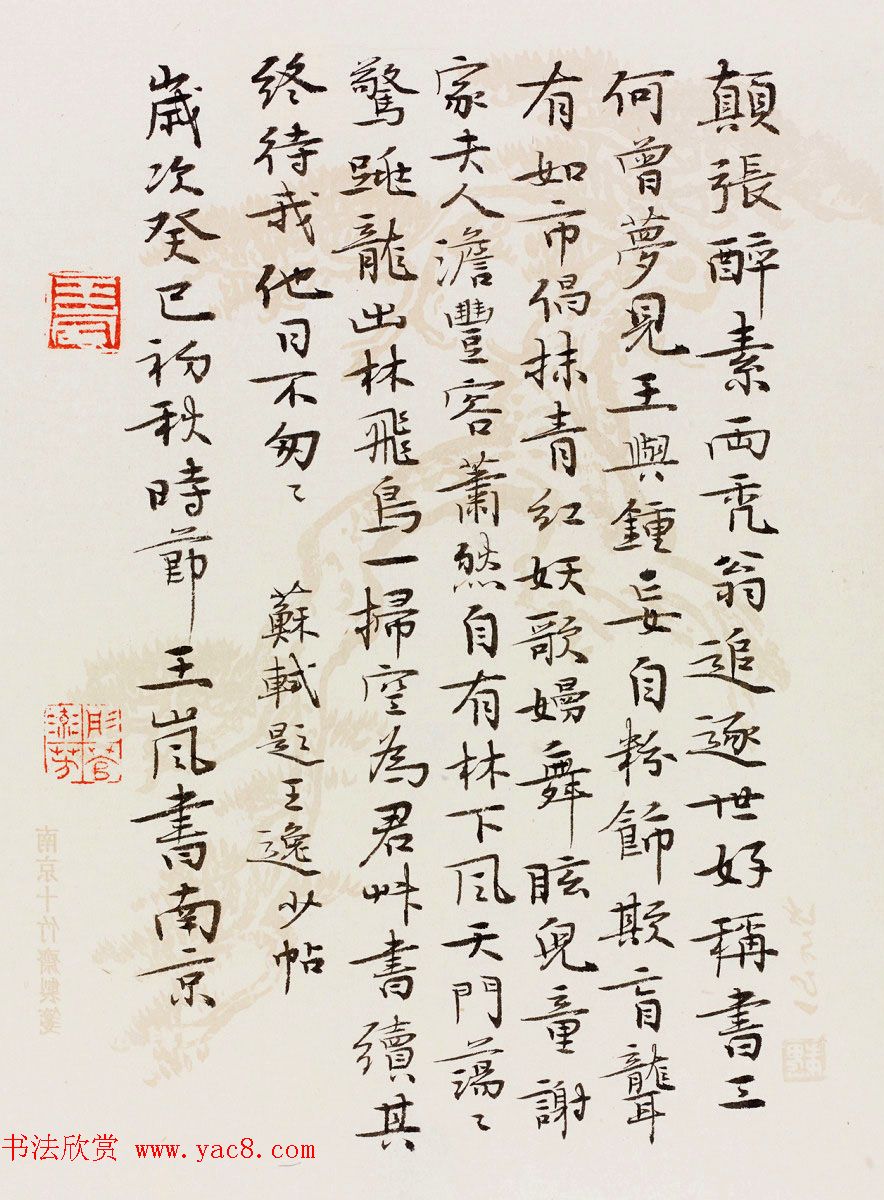 顛張醉素兩禿翁追逐世好稱書工
何曾夢見王與鍾妄自粉飾欺盲聾
有如市倡抹青紅妖歌嫚舞眩兒童謝
家夫人澹豐容蕭然自有林下風天門蕩〻
驚跳龍出林飛鳥一掃空為君草書續其
終待我他日不匆〻 蘇軾題王逸少帖
歲次癸巳初秋時節王嵐書南京
彤管流芳
南京十竹齋製箋
书法欣赏 www.yac8.com